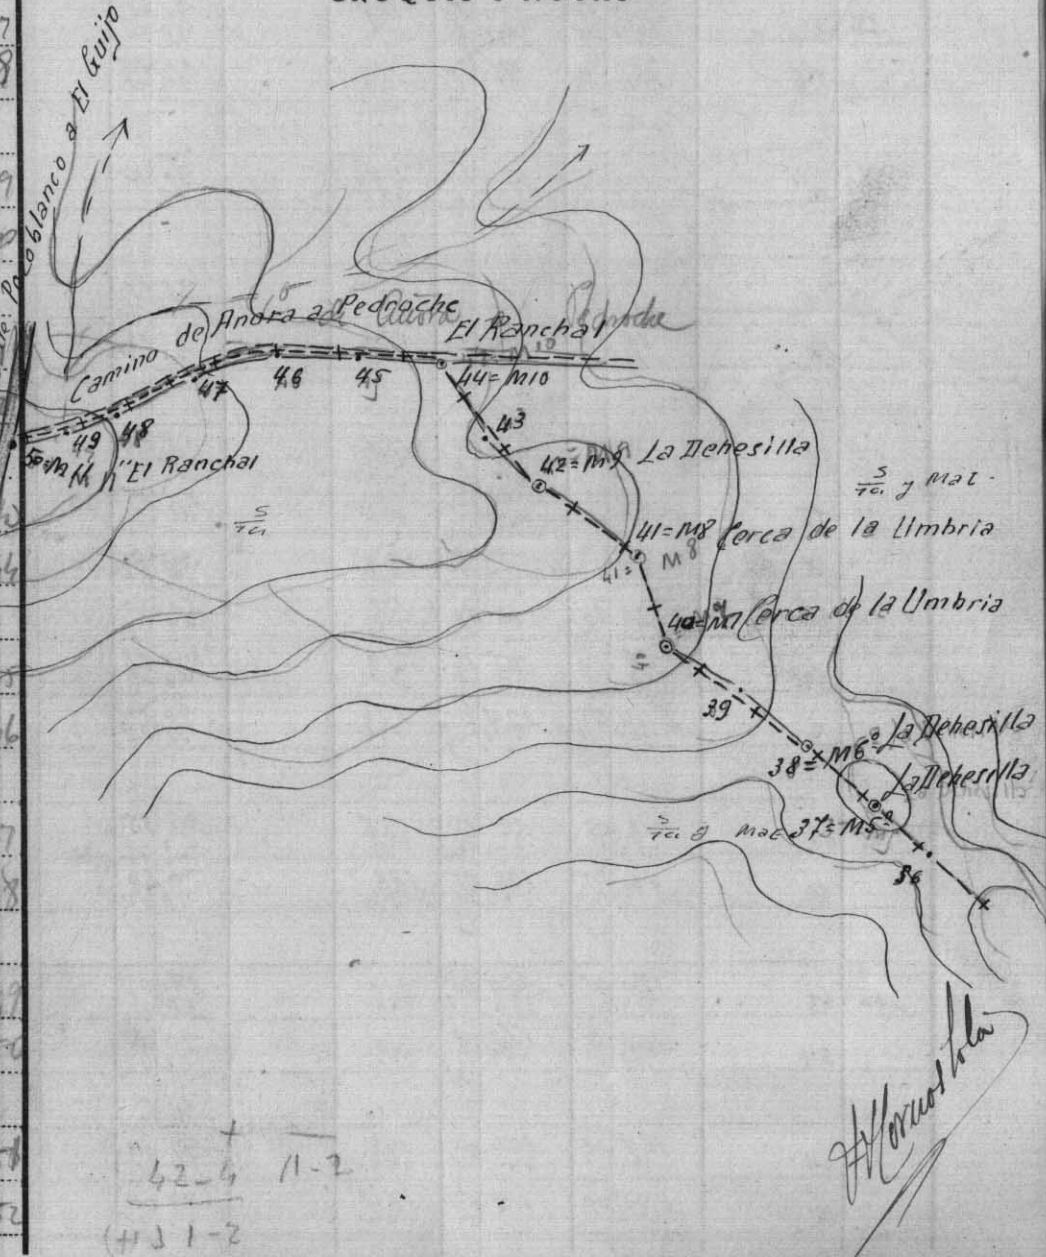 Pozoblanco a El Guijo
Camino de Añora a Pedroche
Pedroche
El Ranchal
44=M10
47
46
45
49
48
43
"El Ranchal
42=M9 La Dehesilla
S/ra y mat.
S/ra
41=M8 Cerca de la Umbria
41=
M8
40=M7 Cerca de la Umbria
40
39
38=M6º La Dehesilla
La Dehesilla
S/ra y mat
37=M5º
36
42-4
11-2